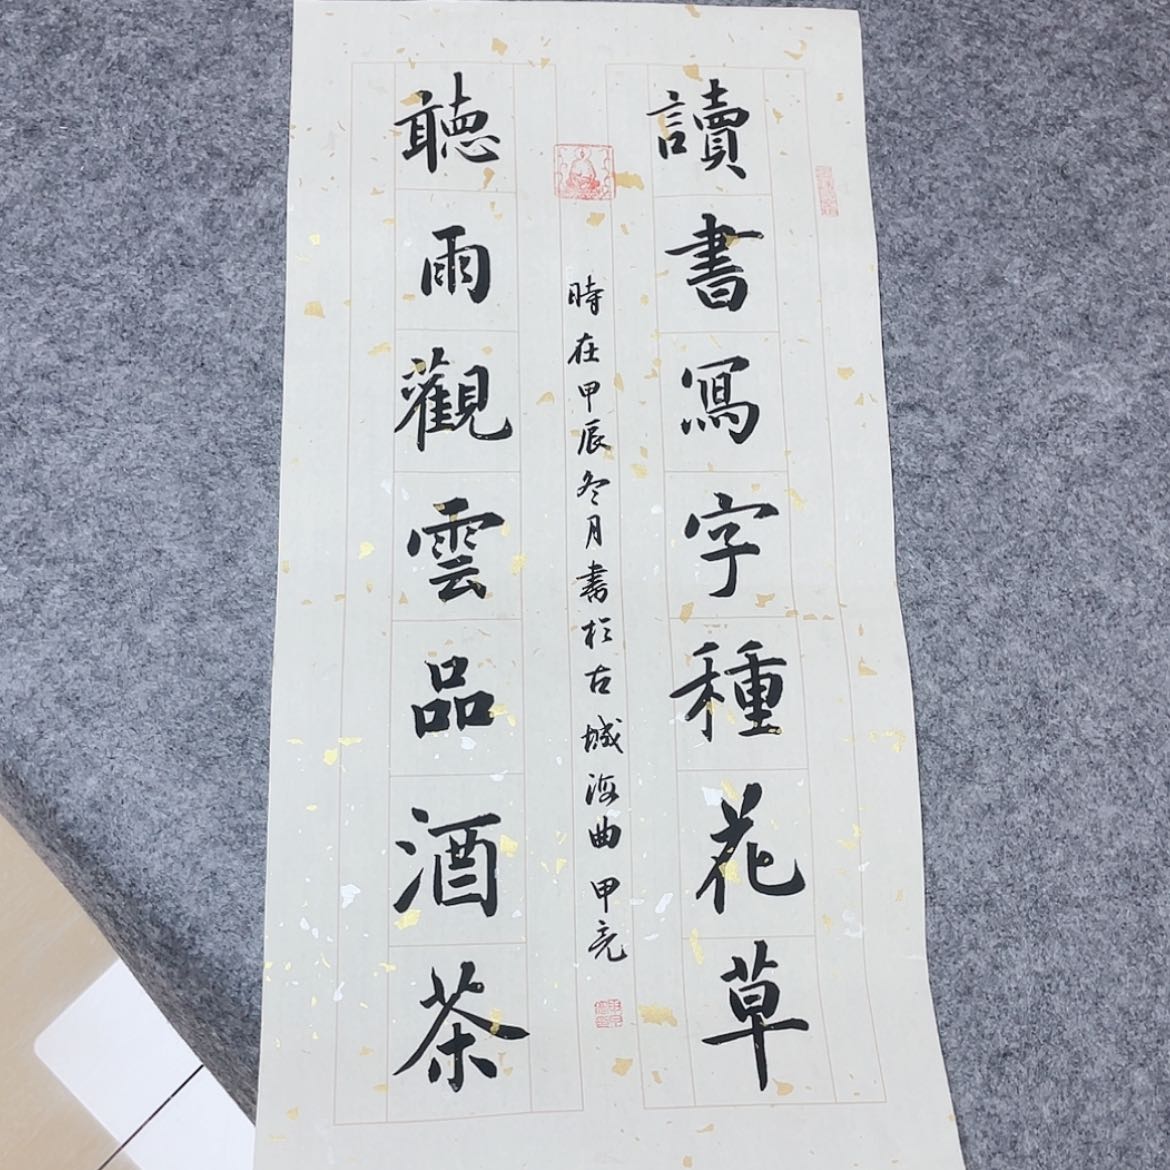 讀書寫字種花草
時在甲辰冬月書於古城海曲甲亮
聽雨觀雲品酒茶